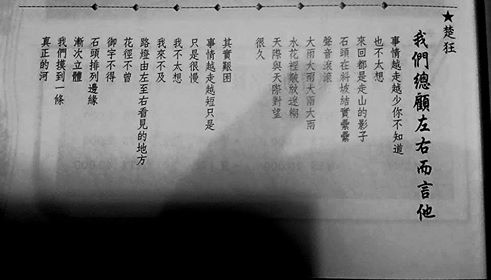 ★楚狂
我們總顧左右而言他
事情越走越少你不知道
也不太想
來回都是走山的影子
石頭在斜坡結實纍纍
聲音滾滾
大雨大雨大雨大雨
水花裡迷糊
天際與天際對望
很久
其實艱困
事情越走越短只是
只是很慢
我不太想
我來不及
路燈由左至右看見的地方
花徑不曾
御字不得
石頭排列邊緣
漸次立體
我們摸到一條
真正的河